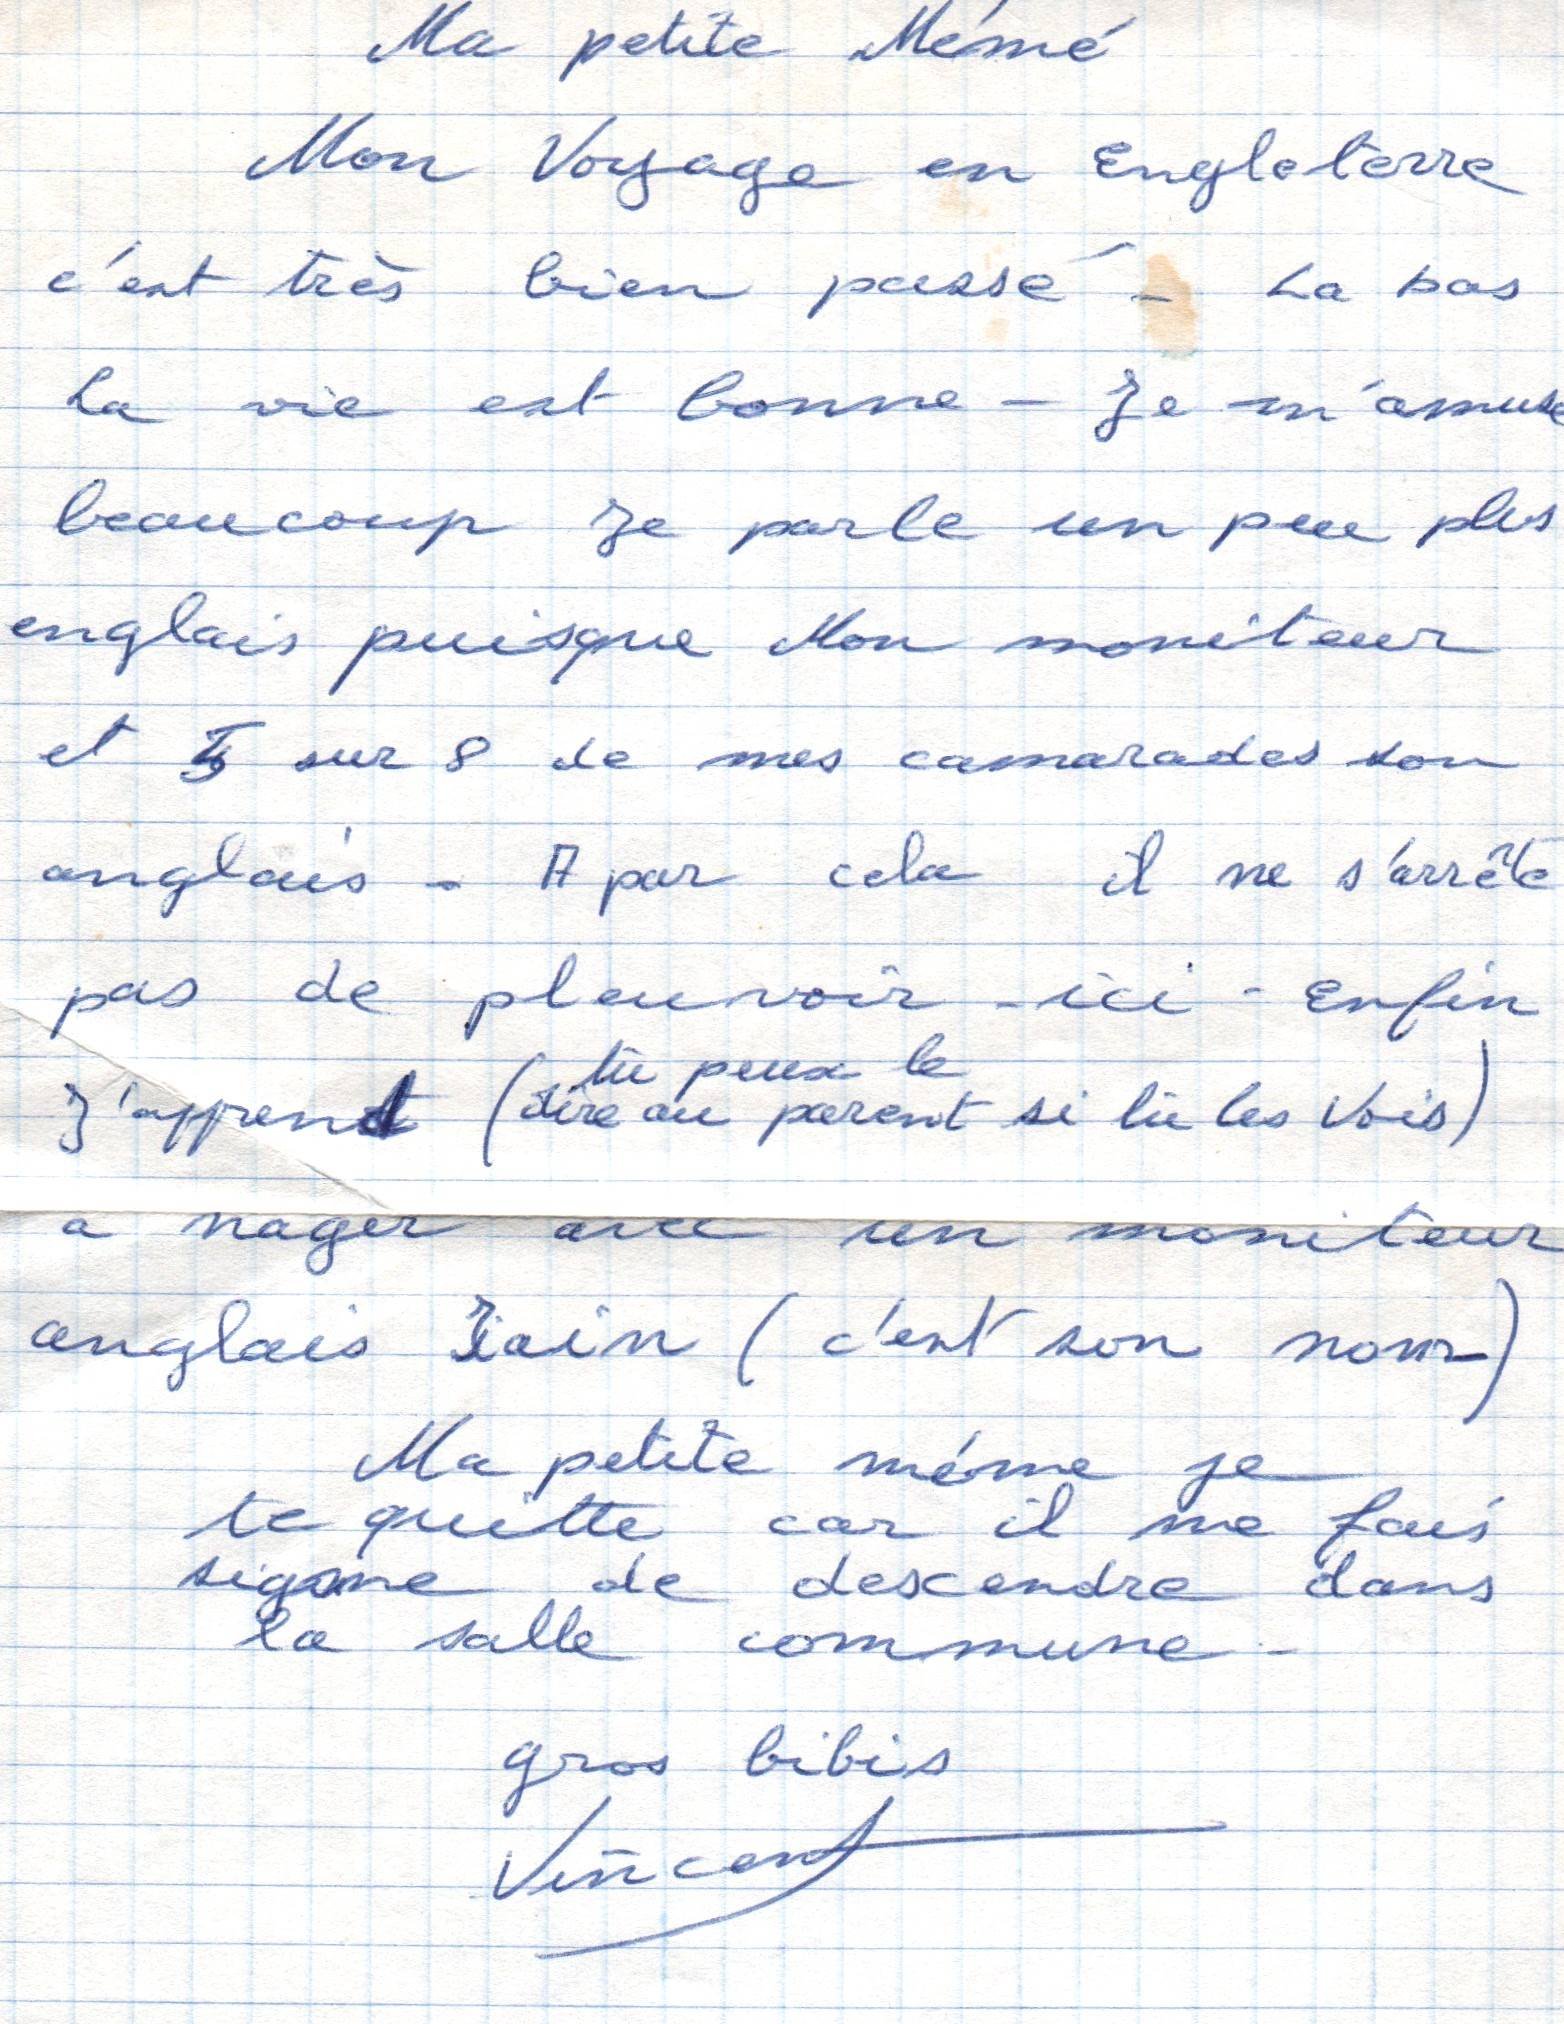 Ma petite Mémé
Mon Voyage en Engleterre
c'est très bien passé - La bas
La vie est bonne - Je m'amuse
beaucoup Je parle un peu plus
englais puisque Mon moniteur
et 5 sur 8 de mes camarades son
anglais - A par cela il ne s'arrête
pas de pleuvoir - ici - Enfin
J'apprend (tu peux le
dire au parent si tu les Vois)
a nager avec un moniteur
anglais Iain (c'est son nom)
Ma petite méme je
te quitte car il me fais
signe de descendre dans
la salle commune -
gros bibis
Vincent